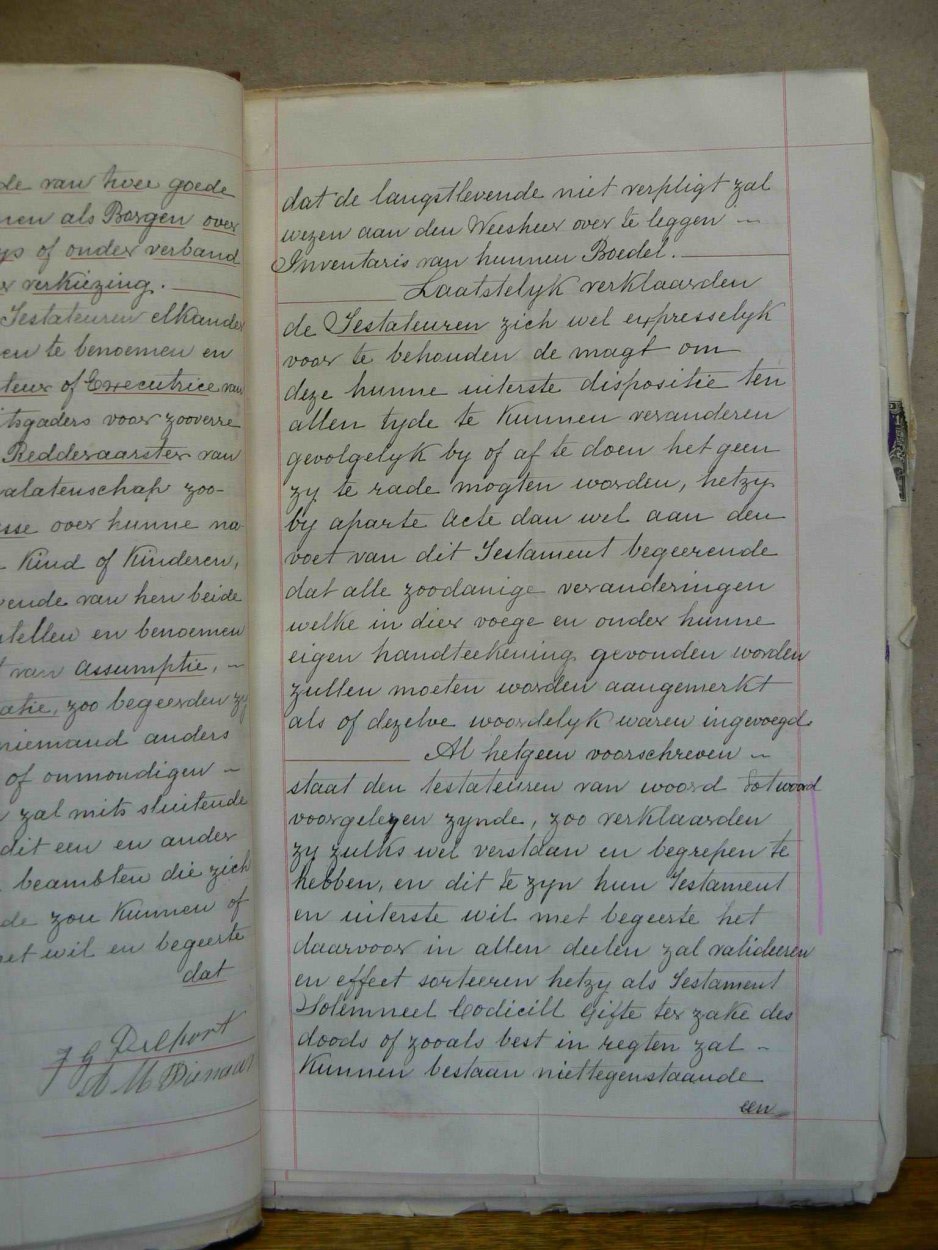 de van twee goede
nen als Borgen over
ys of onder verband
er verkiezing.
Testateuren elkander
en te benoemen en
teur of Executrice van
itsgaders voor zooverre
Redderaarster van
alatenschap zoo-
sse over hunne na
Kind of Kinderen,
ende van hen beide
stellen en benoemen
van assumptie,
atie, zoo begeerden zy
niemand anders
of onmondigen
zal mits sluitende
dit een en ander
beambten die zich
de zou kunnen of
et wil en begeerte
dat
J G Delport
dat de langstlevende niet verpligt zal
wezen aan den Weesheer over te leggen
Inventaris van hunnen Boedel.
Laatstelyk verklaarden
de Testateuren zich wel expresselyk
voor te behouden de magt om
deze hunne uiterste dispositie ten
allen tyde te kunnen veranderen
gevolgelyk by of af te doen het geen
zy te rade mogten worden, hetzy
by aparte acte dan wel aan den
voet van dit Testament begeerende
dat alle zoodanige veranderingen
welke in dier voege en onder hunne
eigen handteekening gevonden worden
zullen moeten worden aangemerkt
als of dezelve woordelyk waren ingevoegd
Al hetgeen voorschreven
staat den testateuren van woord tot woord
voorgelezen zynde, zoo verklaarden
zy zulks wel verstaan en begrepen te
hebben, en dit te zyn hun Testament
en uiterste wil met begeerte het
daarvoor in allen deelen zal valideeren
en effect sorteeren hetzy als Testament
Solemneel Codicill Gifte ter zake des
doods of zooals best in regten zal
Kunnen bestaan niettegenstaande
een